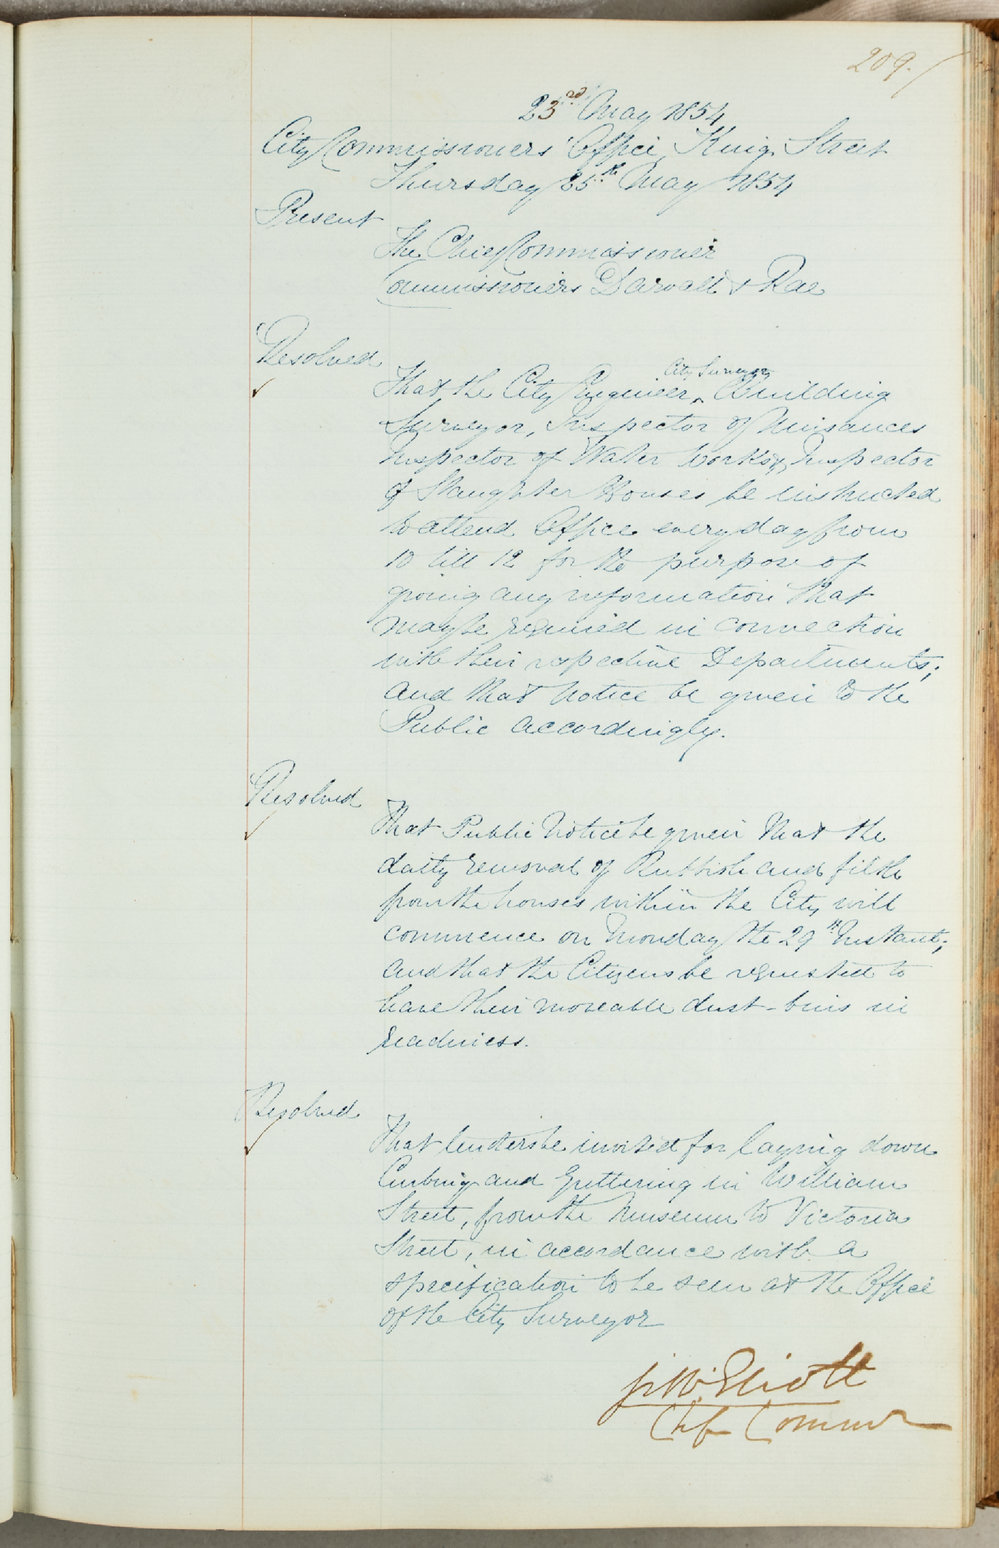 209.
23rd May 1854
City Commissioners Office, King Street
Thursday 25th May 1854
Present
The Chief Commissioner
Commissioners Darvall & Rae
Resolved
City Surveyor
That the City Engineer, ^ Building
Surveyor, Inspector of Nuisances
Inspector of Water Works, Inspector
of Slaughter Houses be instructed
to attend Office every day from
10 till 12 for the purpose of
giving any information that
may be required in connection
with their respective Departments;
and that Notice be given to the
Public accordingly.
Resolved
That Public Notice be given that the
daily removal of Rubbish and filth
from the houses within the City will
commence on Monday the 29th Instant;
and that the Citizens be requested to
have their moveable dust-bins in
readiness.
Resolved
That tenders be invited for laying down
Curbing and Guttering in William
Street, from the Museum to Victoria
Street, in accordance with a
specification to be seen at the Office
of the City Surveyor
Elliott
Chf Commr